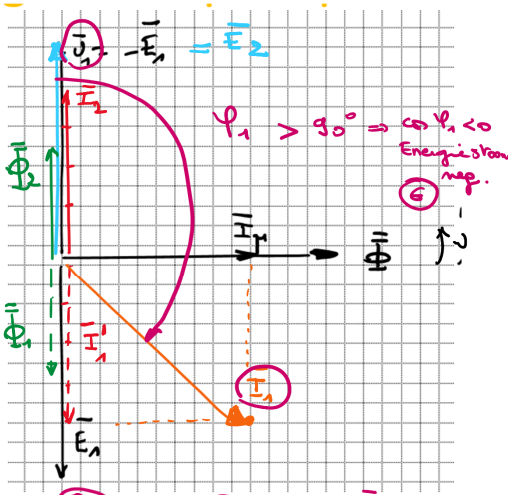 U̅₁ -E̅₁ = E̅₂
I̅₂
φ₁ > 90° ⇒ cos φ₁ < 0
Energiestroom
neg.
G
Φ̅₂
I̅μ
Φ̅
Φ̅₁
I̅₁'
I̅₁
E̅₁